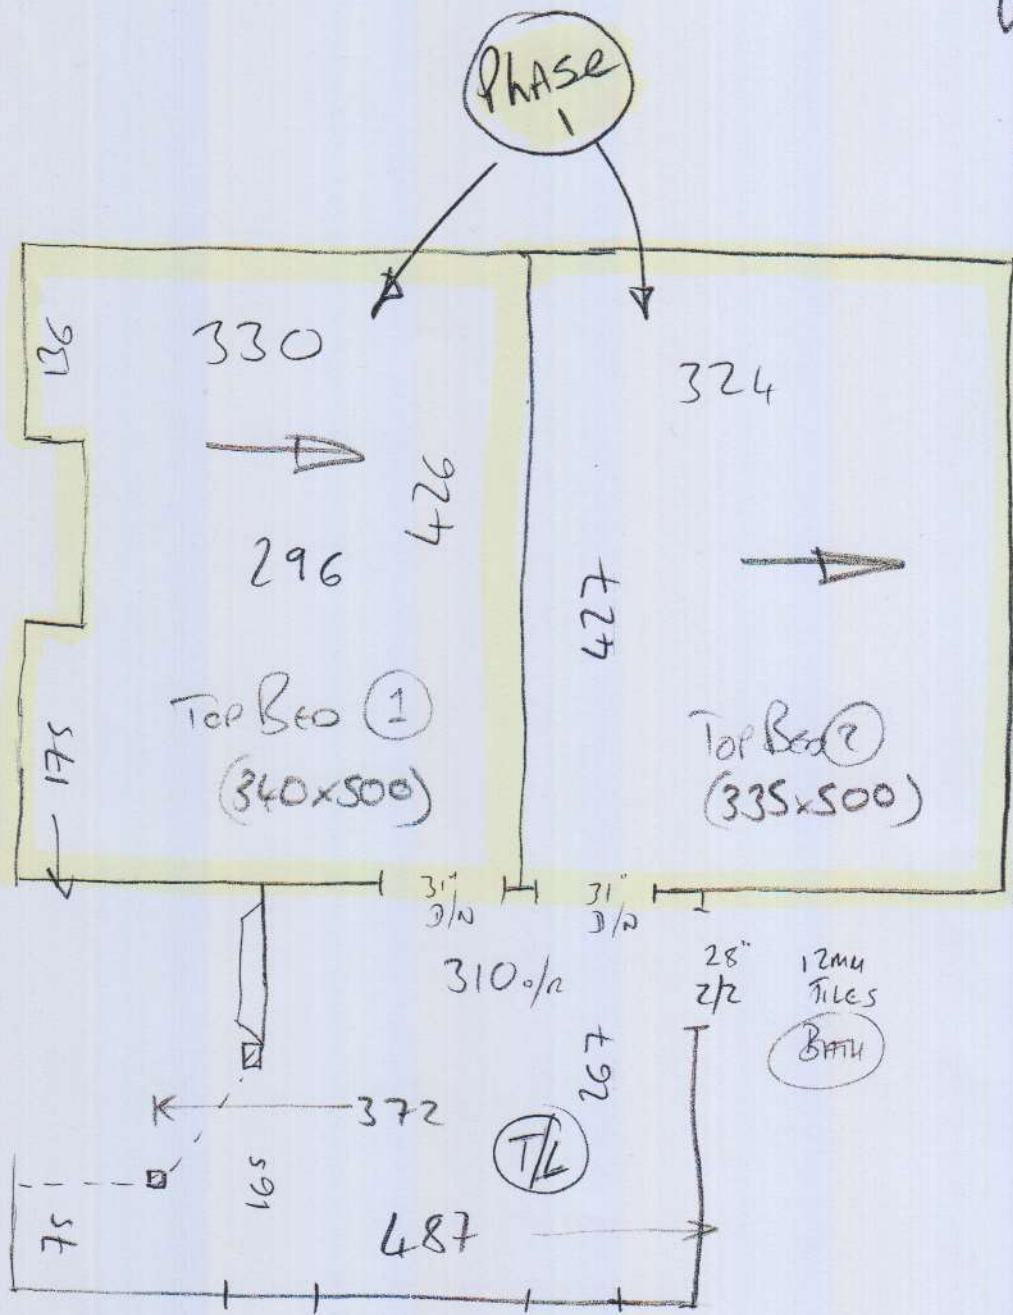 PhASe
1
136
330
324
426
296
427
Top Bed 1
(340x500)
Top Bed 2
(335x500)
175
31"
D/N
31"
D/N
310 o/n
28"
2/2
12MM
TILES
BATH
267
372
T/L
165
75
487